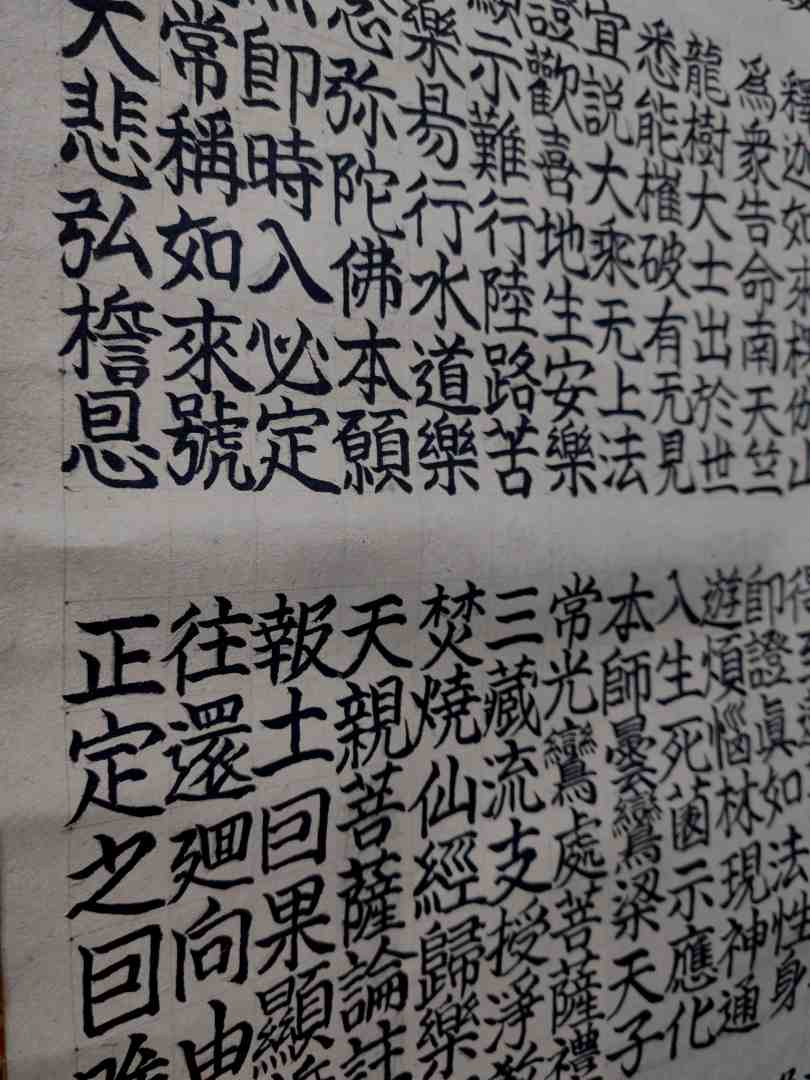 釋迦如來楞伽山
爲衆告命南天竺
龍樹大士出於世
悉能摧破有无見
宣說大乘无上法
證歡喜地生安樂
顯示難行陸路苦
樂易行水道樂
念弥陀佛本願
即時入必定
常稱如來號
大悲弘誓恩
即證眞如法性身
遊煩惱林現神通
入生死薗示應化
本師曇鸞梁天子
常光鸞處菩薩禮
三藏流支授淨教
焚燒仙經歸樂
天親菩薩論註
報土囙果顯
往還廻向由
正定之囙唯